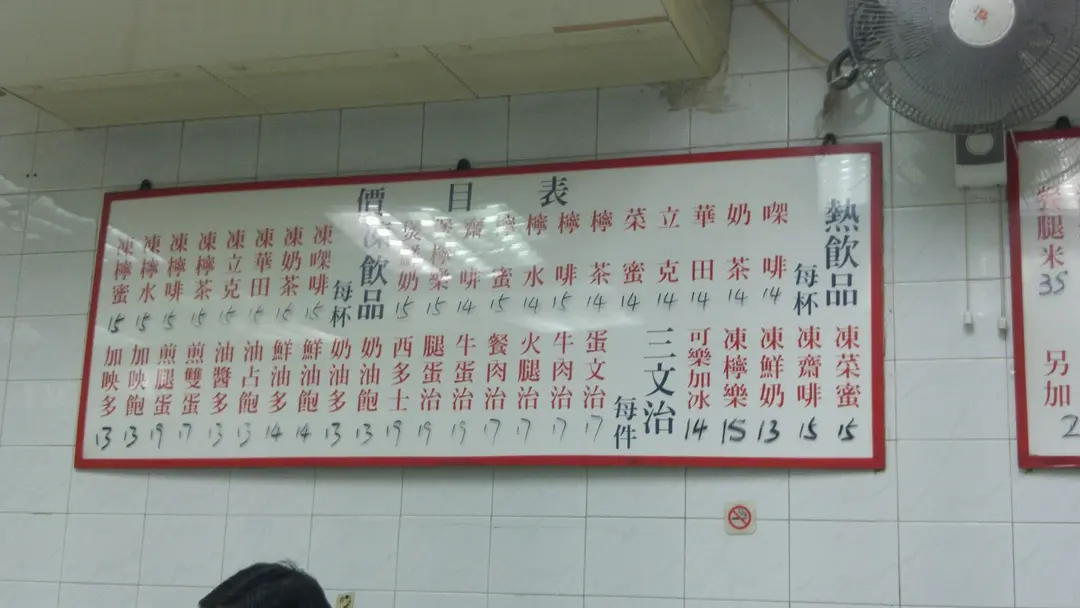 價目表
熱飲品 每杯
㗎啡 14
奶茶 14
華田 14
立克 14
菜蜜 14
檸茶 14
檸啡 15
檸水 14
檸蜜 15
齋啡 14
15
奶 15
凍飲品 每杯
凍㗎啡 15
凍奶茶 15
凍華田 15
凍立克 15
凍檸茶 15
凍檸啡 15
凍檸水 15
凍檸蜜 15
凍菜蜜 15
凍齋啡 15
凍鮮奶 13
凍檸樂 15
可樂加冰 14
三文治 每件
蛋文治 17
牛肉治 17
火腿治 17
餐肉治 17
牛蛋治 19
腿蛋治 19
西多士 19
奶油飽 13
奶油多 13
鮮油飽 14
鮮油多 14
油占多 13
油醬多 13
煎雙蛋 17
煎腿蛋 19
加央飽 13
加央多 13
腿米 35
另加